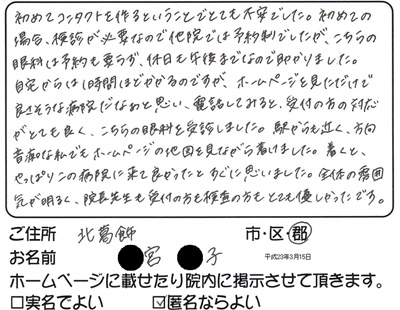 初めてコンタクトを作るということでとても不安でした。初めての
場合、検診が必要なので他院では予約制でしたが、こちらの
眼科は予約も要らず、休日も午後までなので助かりました。
自宅からは1時間ほどかかるのですが、ホームページを見ただけで
良さそうな病院だなぁと思い、電話してみると、受付の方の対応
がとても良く、こちらの眼科を受診しました。駅からも近く、方向
音痴な私でもホームページの地図を見ながら着けました。着くと、
やっぱりこの病院に来て良かったとすぐに思いました。全体の雰囲
気が明るく、院長先生も受付の方も検査の方もとても優しかったです。
ご住所 北葛飾 市・区・郡
お名前 宮 子 平成23年3月15日
ホームページに載せたり院内に掲示させて頂きます。
□実名でよい ☑匿名ならよい